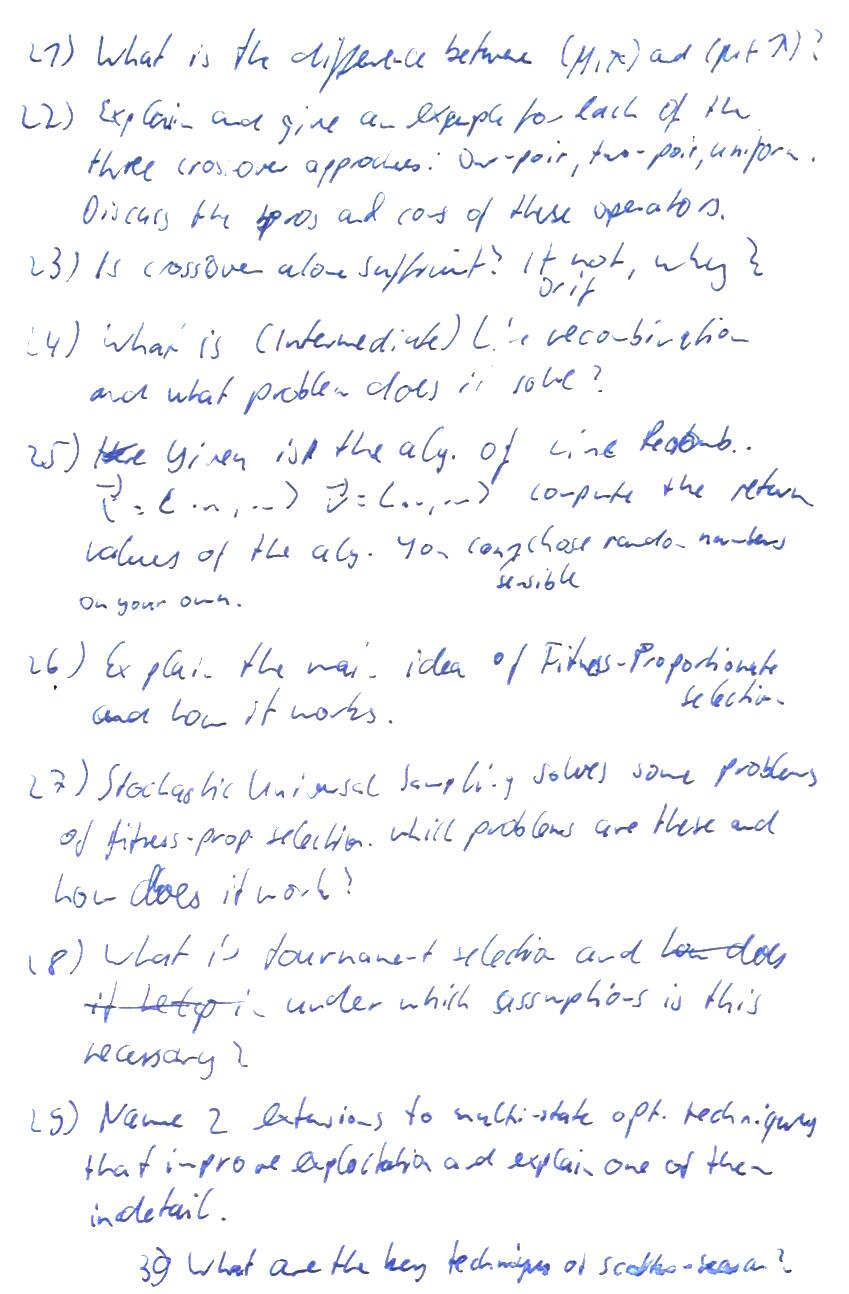 21) What is the difference between (μ,λ) and (μ+λ)?
22) Explain and give an example for each of the
three crossover approaches: One-point, two-point, uniform.
Discuss the pros and cons of these operators.
23) Is crossover alone sufficient? If not, why?
Drif
24) What is (Intermediate) Line recombination
and what problem does it solve?
25) Given is the alg. of Line Recomb..
= <..., ...> v = <..., ...> compute the return
values of the alg. You can chose random numbers
sensible
on your own.
26) Explain the main idea of Fitness-Proportionate
selection
and how it works.
27) Stochastic Universal Sampling solves some problems
of fitness-prop selection. Which problems are these and
how does it work?
28) What is tournament selection and how does
it in under which assumptions is this
necessary?
29) Name 2 extensions to multi-state opt. techniques
that improve exploitation and explain one of them
in detail.
30) What are the key techniques of scatter-search?